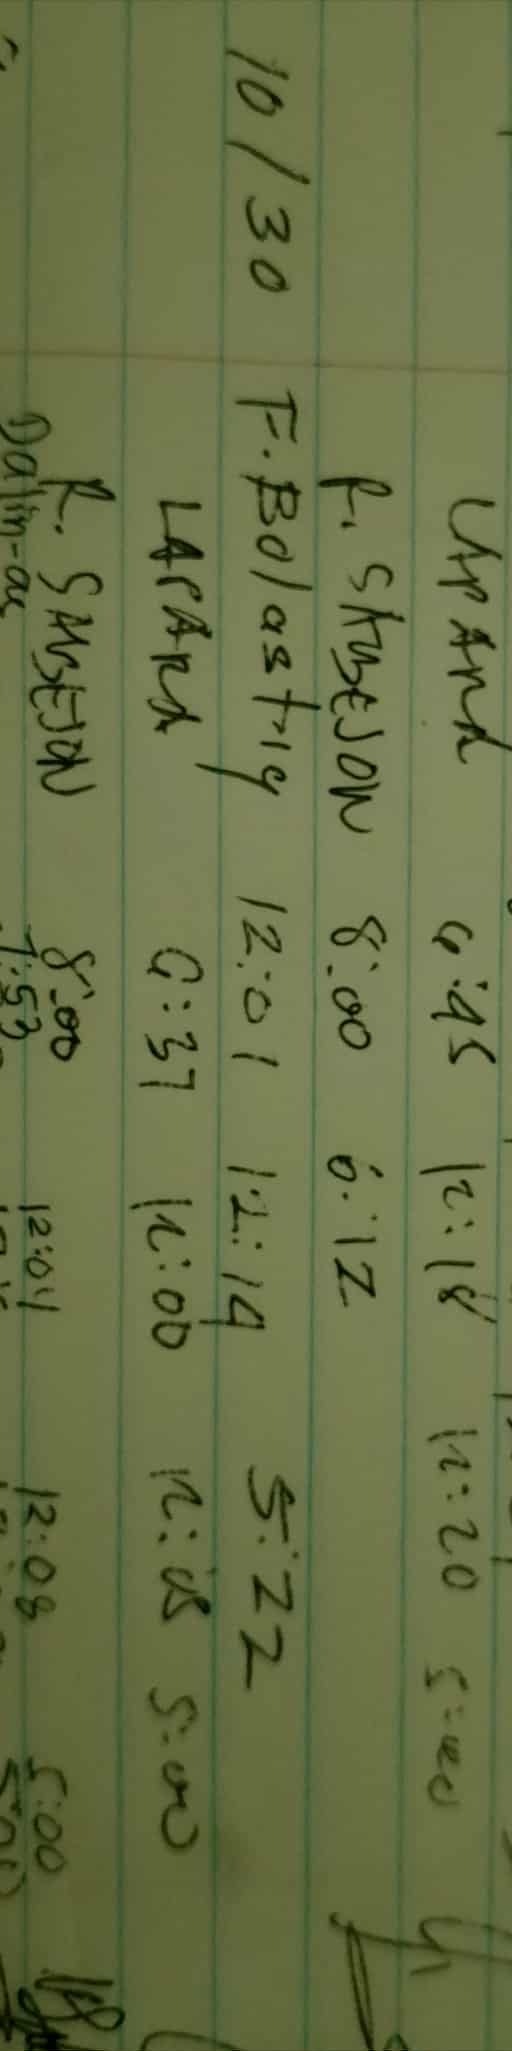 LAPARA 6:45 12:18 12:20 5:00
R. SABEJON 8:00 6:12
10/30 F. Bolastig 12:01 12:14 5:22
LAPARA 6:37 12:00 12:05 5:00
R. SABEJON 8:00 12:04 12:08 5:00